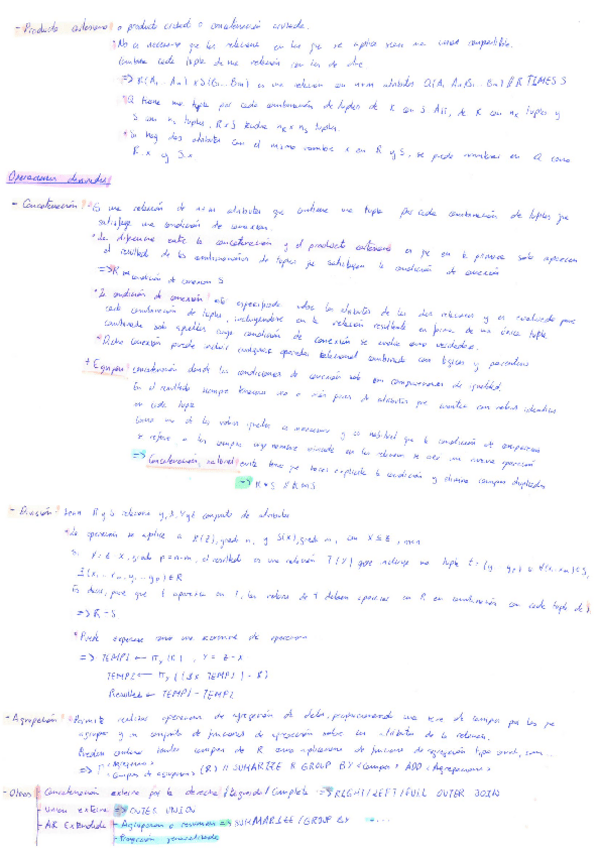 - Producto externo o producto cruzado o concatenación cruzada.
* No es necesario que las relaciones en las que se aplica sean una unión compatible.
Combina cada tupla de una relación con las de otra
=> R(A₁...An) x S(B₁...Bm) es una relación con n+m atributos Q(A₁ An B₁... Bm) // R TIMES S
* Q tiene una tupla por cada combinación de tuplas de R con S. Así, de R con nR tuplas y
S con ns tuplas, R x S tendrá nR x ns tuplas.
* Si hay dos atributos con el mismo nombre x en R y S, se puede nombrar en Q como
R.x y S.x.
Operaciones derivadas
- Concatenación: * Es una relación de n+m atributos que contiene una tupla por cada combinación de tuplas que
satisfaga una condición de conexión.
* La diferencia entre la concatenación y el producto externo es que en la primera solo aparecen
el resultado de las combinaciones de tuplas que satisfagan la condición de conexión
=> R ⋈ condición de conexión S
* La condición de conexión está especificada sobre los atributos de las dos relaciones y es evaluada para
cada combinación de tuplas, incluyéndose en la relación resultante en forma de una única tupla
combinada solo aquellas cuya condición de conexión se evalúe como verdadera.
* Dicha conexión puede incluir cualquier operador relacional combinado con lógicos y paréntesis
+ Equijoin: concatenación donde las condiciones de conexión son comparaciones de igualdad.
En el resultado siempre tenemos uno o más pares de atributos que cuentan con valores idénticos
en cada tupla
Como uno de los valores iguales es innecesario y es habitual que la condición de comparación
se refiera a los campos cuyo nombre coincide en las relaciones se creó una nueva operación
=> Concatenación natural: evita tener que hacer explícita la condición y elimina campos duplicados
=> R * S // R ⋈ S
- División: Sean R y S relaciones y X, Y y Z conjuntos de atributos
* La operación se aplica a R(Z), grado n, y S(X), grado m, con X ⊆ Z
=> R ÷ S
* Puede expresarse como una secuencia de operaciones
=> TEMP1 ← πy (R) , Y = Z - X
TEMP2 ← πy ((S x TEMP1) - R)
Resultado ← TEMP1 - TEMP2
- Agrupación: * Permite realizar operaciones de agregación de datos, proporcionando una serie de campos por los que
agrupar y un conjunto de funciones de agregación sobre los atributos de la relación.
Pueden contener tantos campos de R como aplicaciones de funciones de agregación tipo count, sum...
=> <Campos de agrupación> <Agregaciones> (R) // SUMMARIZE R GROUP BY <Campos> ADD <Agregaciones>
- Otras: - Concatenación externa por la derecha / Izquierda / Completa => RIGHT/LEFT/FULL OUTER JOIN
- Unión externa => OUTER UNION
- AR Extendida - Agrupación o resumen => SUMMARIZE / GROUP BY ...
- Proyección generalizada